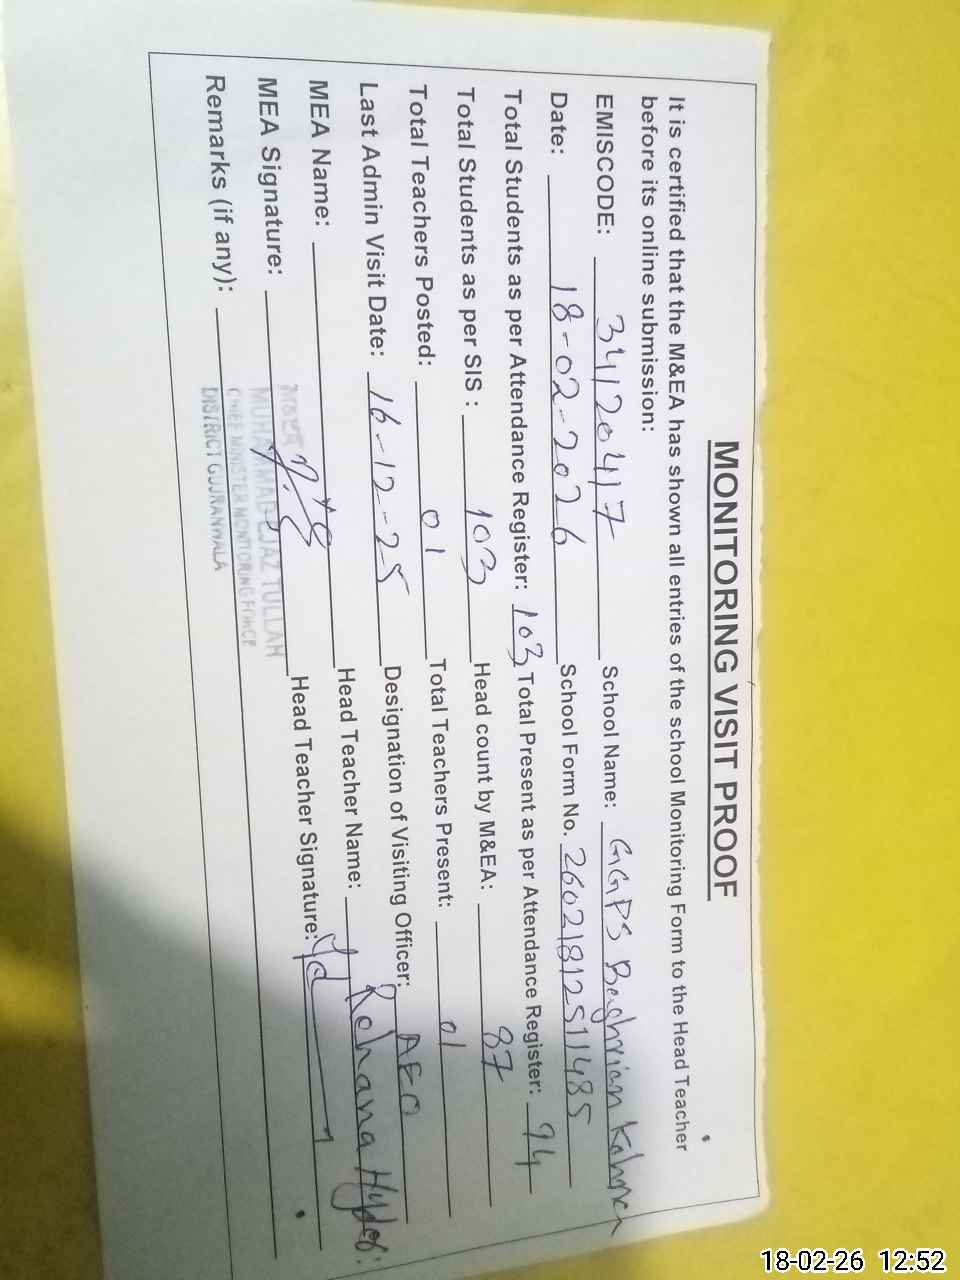 MONITORING VISIT PROOF
It is certified that the M&EA has shown all entries of the school Monitoring Form to the Head Teacher
before its online submission:
EMISCODE: 34120417 School Name: GGPS Beghrian Kohna
Date: 18-02-2026 School Form No. 26021812511485
Total Students as per Attendance Register: 103 Total Present as per Attendance Register: 94
Total Students as per SIS : 103 Head count by M&EA: 87
Total Teachers Posted: 01 Total Teachers Present: 01
Last Admin Visit Date: 16-12-25 Designation of Visiting Officer: AEO
MEA Name: Head Teacher Name: Rehana Hyder
MEA Signature: Head Teacher Signature:
Remarks (if any):
M&EA
MUHAMMAD EJAZ TULLAH
CHIEF MINISTER MONITORING FORCE
DISTRICT GUJRANWALA
18-02-26 12:52